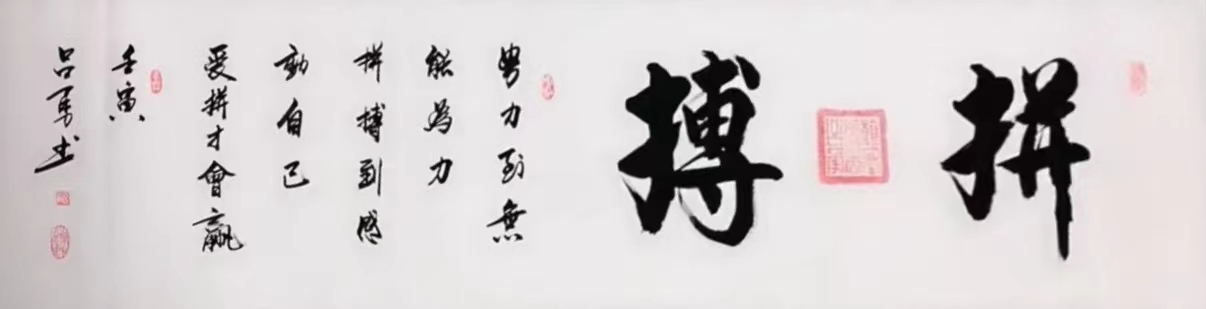 拼搏
努力到無
能為力
拼搏到感
動自己
愛拼才會贏
壬寅
吕勇书